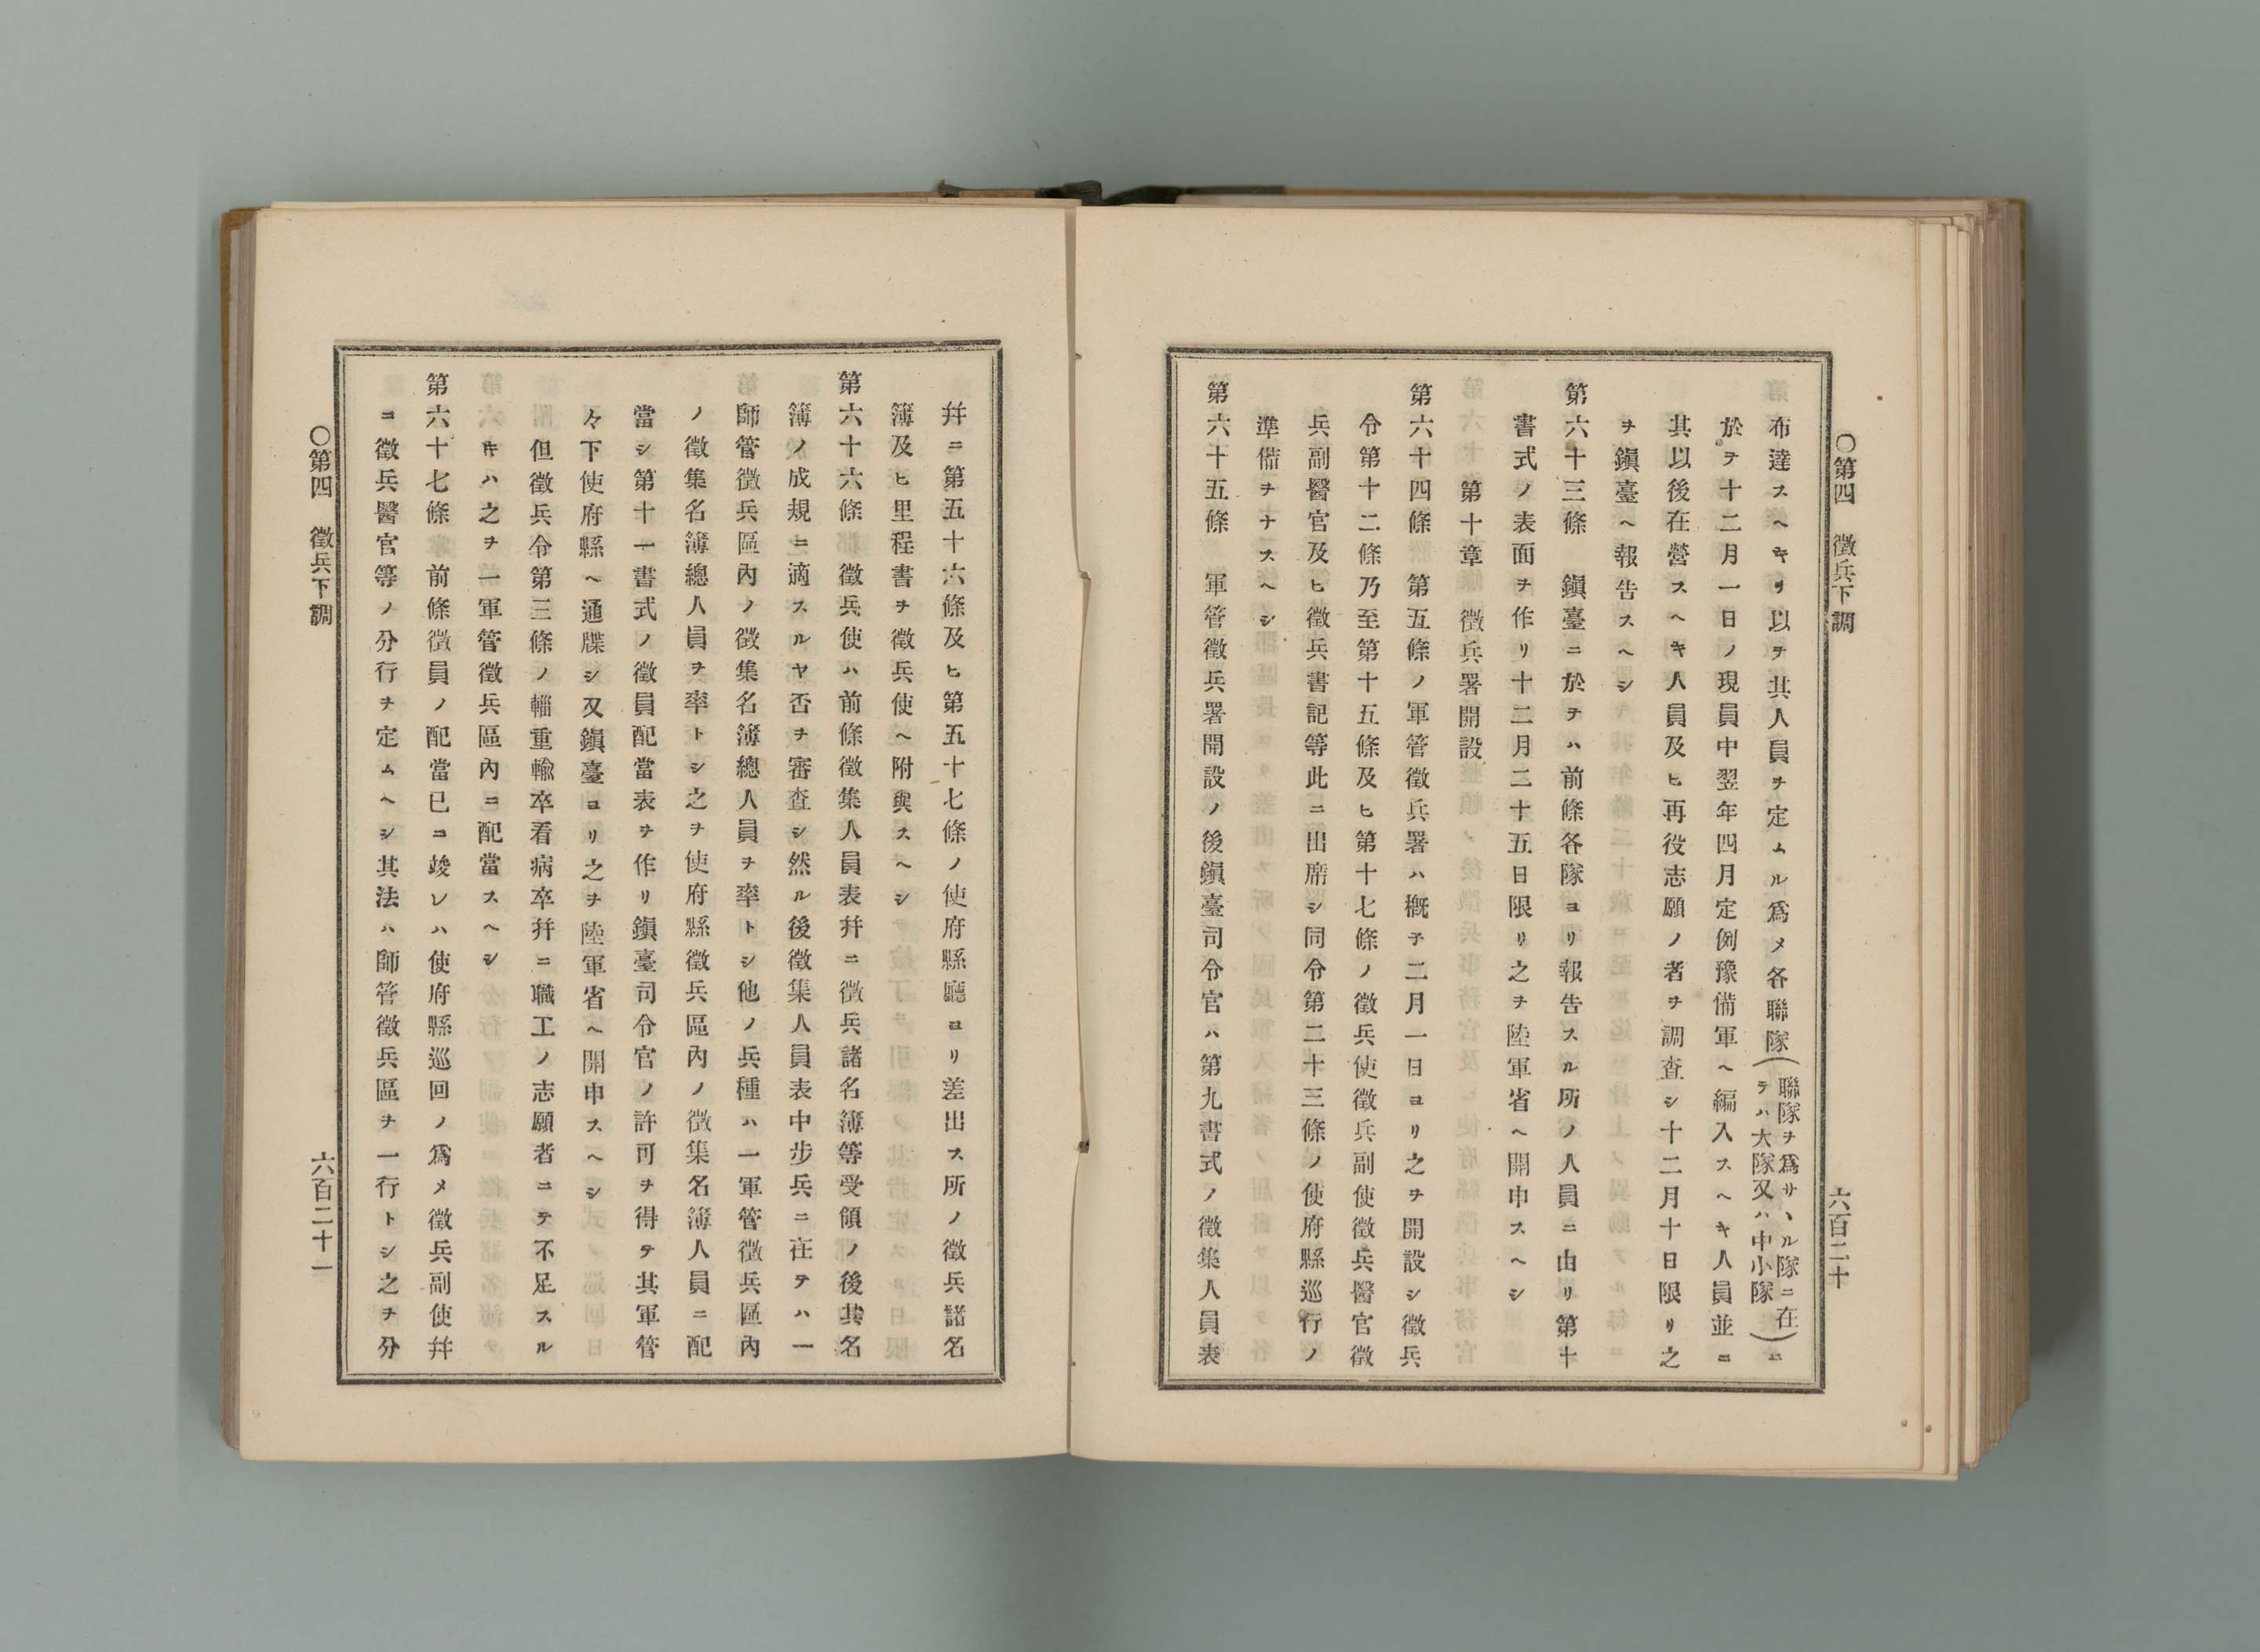 〇第四　徵兵下調
六百二十
布達スヘキヲ以テ其人員ヲ定ムル爲メ各聯隊（聯隊ヲ爲サヽル隊ニ在テハ大隊又ハ中小隊）ニ
於テ十二月一日ノ現員中翌年四月定例豫備軍ヘ編入スヘキ人員並ニ
其以後在營スヘキ人員及ヒ再役志願ノ者ヲ調査シ十二月十日限リ之
ヲ鎭臺ヘ報告スヘシ
第六十三條　鎭臺ニ於テハ前條各隊ヨリ報告スル所ノ人員ニ由リ第十
書式ノ表面ヲ作リ十二月二十五日限リ之ヲ陸軍省ヘ開申スヘシ
第十章　徵兵署開設
第六十四條　第五條ノ軍管徵兵署ハ槪子二月一日ヨリ之ヲ開設シ徵兵
令第十二條乃至第十五條及ヒ第十七條ノ徵兵使徵兵副使徵兵醫官徵
兵副醫官及ヒ徵兵書記等此ニ出席シ同令第二十三條ノ使府縣巡行ノ
準備ヲナスヘシ
第六十五條　軍管徵兵署開設ノ後鎭臺司令官ハ第九書式ノ徵集人員表
幷ニ第五十六條及ヒ第五十七條ノ使府縣廳ヨリ差出ス所ノ徵兵諸名
簿及ヒ里程書ヲ徵兵使ヘ附與スヘシ
第六十六條　徵兵使ハ前條徵集人員表幷ニ徵兵諸名簿等受領ノ後其名
簿ノ成規ニ適スルヤ否ヲ審査シ然ル後徵集人員表中步兵ニ在テハ一
師管徵兵區內ノ徵集名簿總人員ヲ率トシ他ノ兵種ハ一軍管徵兵區內
ノ徵集名簿總人員ヲ率トシ之ヲ使府縣徵兵區內ノ徵集名簿人員ニ配
當シ第十一書式ノ徵員配當表ヲ作リ鎭臺司令官ノ許可ヲ得テ其軍管
々下使府縣ヘ通牒シ又鎭臺ヨリ之ヲ陸軍省ヘ開申スヘシ
但徵兵令第三條ノ輜重輸卒看病卒幷ニ職工ノ志願者ニテ不足スル
キハ之ヲ一軍管徵兵區內ニ配當スヘシ
第六十七條　前條徵員ノ配當已ニ竣レハ使府縣巡回ノ爲メ徵兵副使幷
ニ徵兵醫官等ノ分行ヲ定ムヘシ其法ハ師管徵兵區ヲ一行トシ之ヲ分
〇第四　徵兵下調
六百二十一